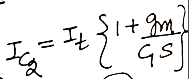 I_{C_2} = I_t { 1 + gm / GS }